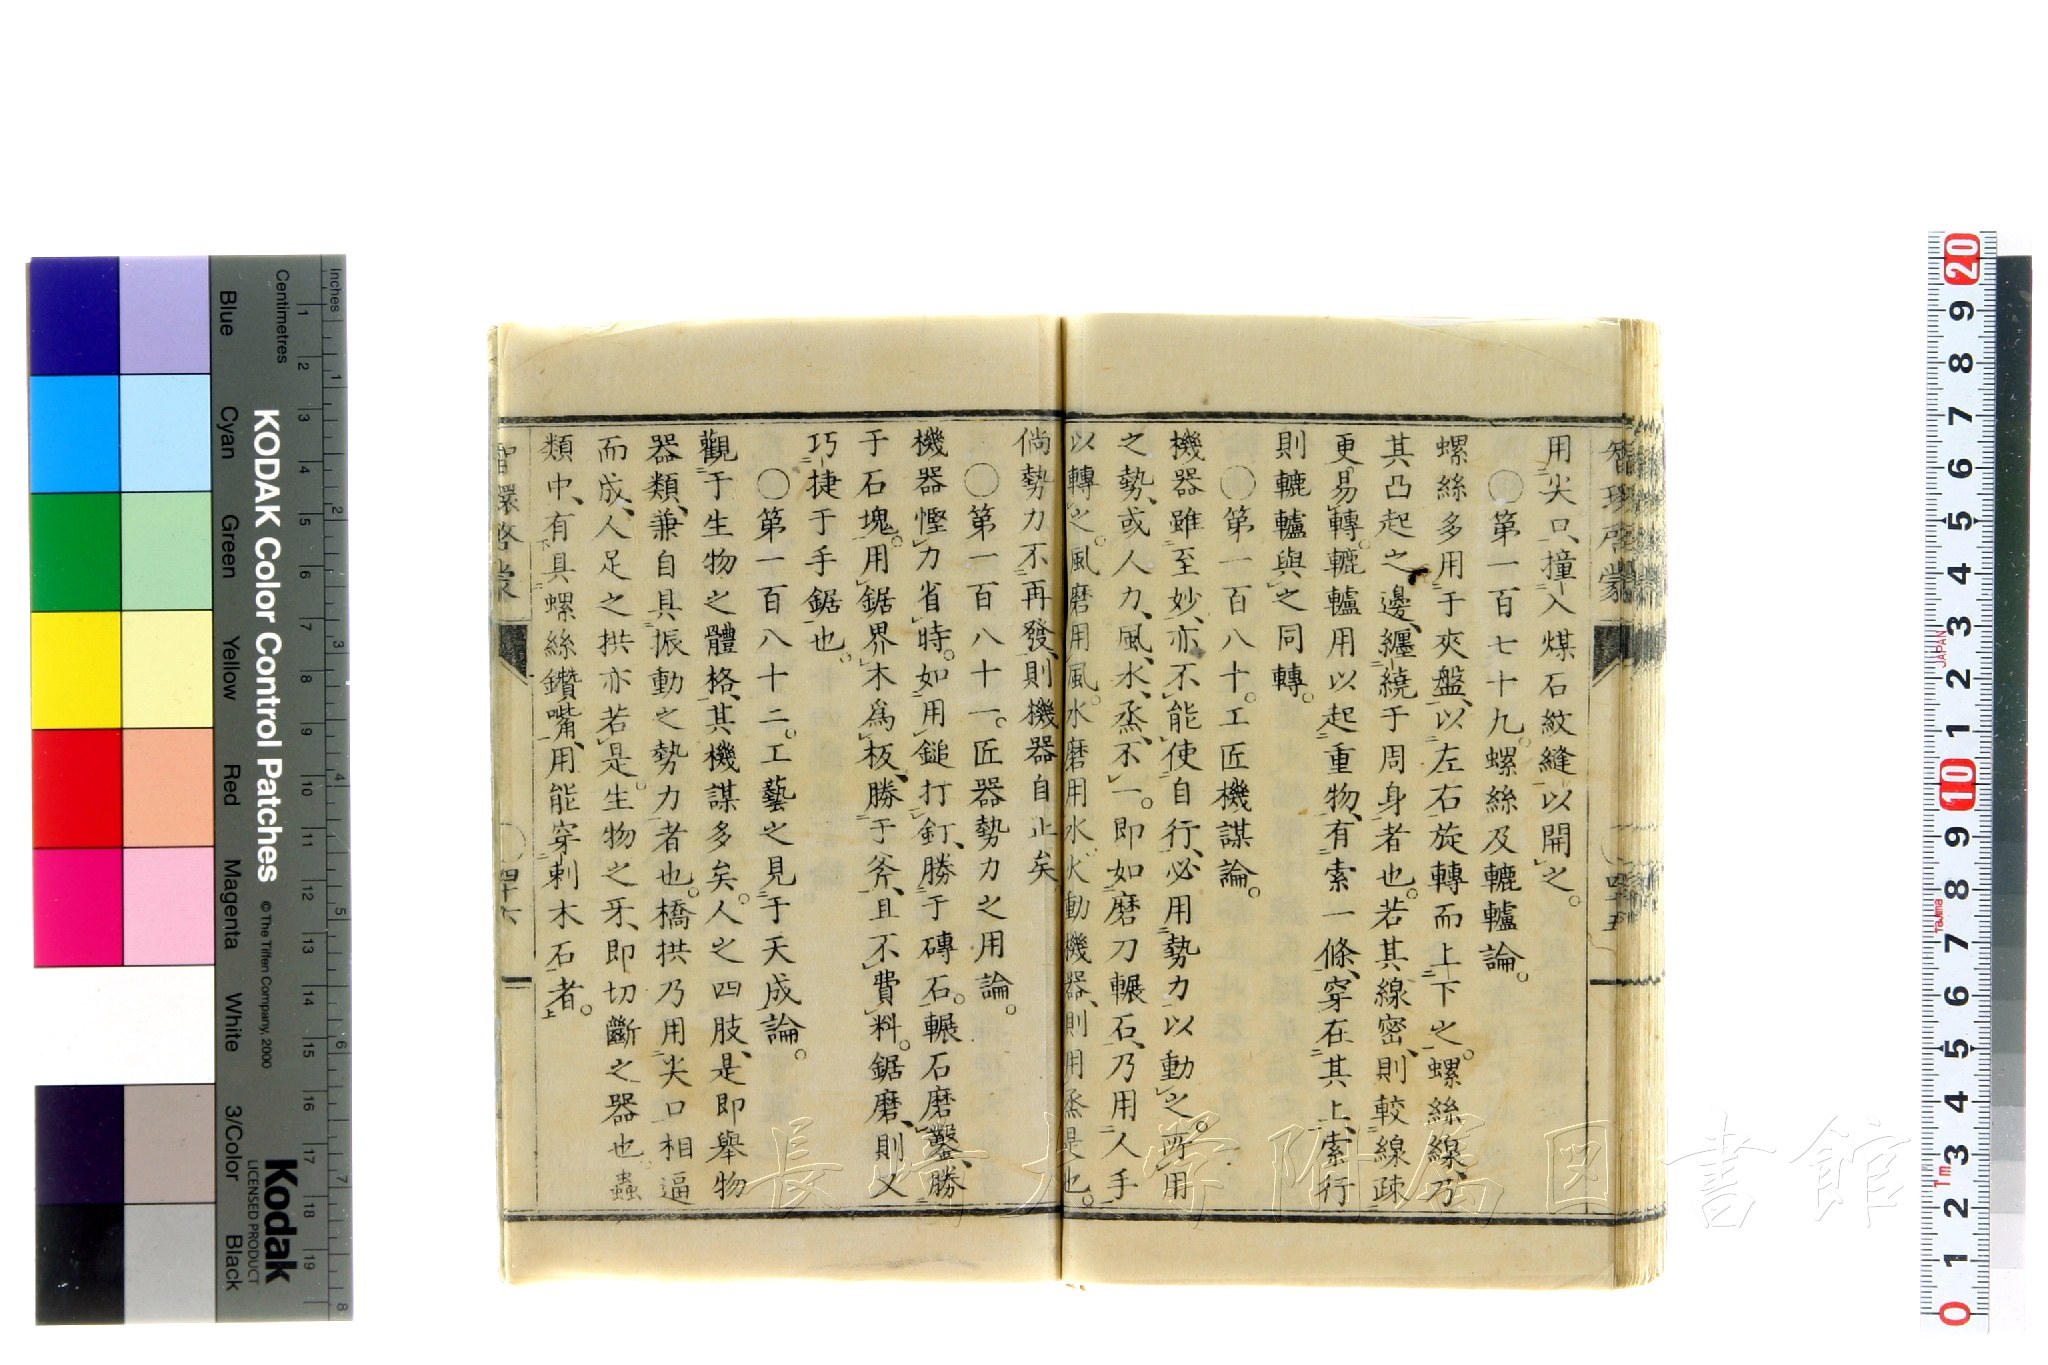 智環啓蒙
四十五
用尖口、撞入煤石紋縫以開之。
○第一百七十九。螺絲及轆轤論。
螺絲多用于夾盤、以左右旋轉而上下之。螺絲線、乃
其凸起之邊、纏繞于周身者也。若其線密、則較線疎
更易轉。轆轤用以起重物、有索一條、穿在其上、索行
則轆轤與之同轉。
○第一百八十。工匠機謀論。
機器雖至妙、亦不能使自行、必用勢力以動之。所用
之勢、或人力、風、水、烝、不一。即如磨刀輾石、乃用人手
以轉之。風磨用風。水磨用水。火動機器、則用烝是也。
倘勢力不再發、則機器自止矣
○第一百八十一。匠器勢力之用論。
機器慳力省時。如用鎚打釘、勝于磚石。輾石磨鑿、勝
于石塊。用鋸界木爲板、勝于斧、且不費料。鋸磨、則又
巧捷于手鋸也。
○第一百八十二。工藝之見于天成論。
觀于生物之體格、其機謀多矣。人之四肢、是即舉物
器類、兼自具振動之勢力者也。橋拱乃用尖口相逼
而成、人足之拱亦若是。生物之牙、即切斷之器也。蟲
類中、有具螺絲鑽嘴、用能穿刺木石者。
智環啓蒙
四十六
KODAK Color Control Patches
© The Tiffen Company, 2000
Kodak
LICENSED PRODUCT
Inches
Centimetres
Blue
Cyan
Green
Yellow
Red
Magenta
White
3/Color
Black
JAPAN
Tajima
長崎大学附属図書館